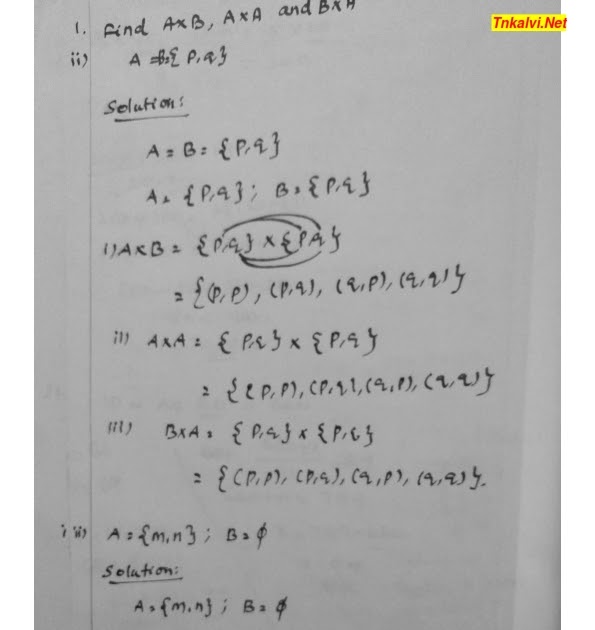 Tnkalvi.Net
1. Find A×B, A×A and B×A
ii) A =B={P,q}
Solution:
A = B = {P,q}
A = {P,q} ; B = {P,q}
i) A×B = {P,q} × {P,q}
= {(P,P), (P,q), (q,P), (q,q)}
ii) A×A = {P,q} × {P,q}
= {(P,P), (P,q), (q,P), (q,q)}
iii) B×A = {P,q} × {P,q}
= {(P,P), (P,q), (q,P), (q,q)}.
iii) A = {m,n} ; B = ϕ
Solution:
A = {m,n} ; B = ϕ